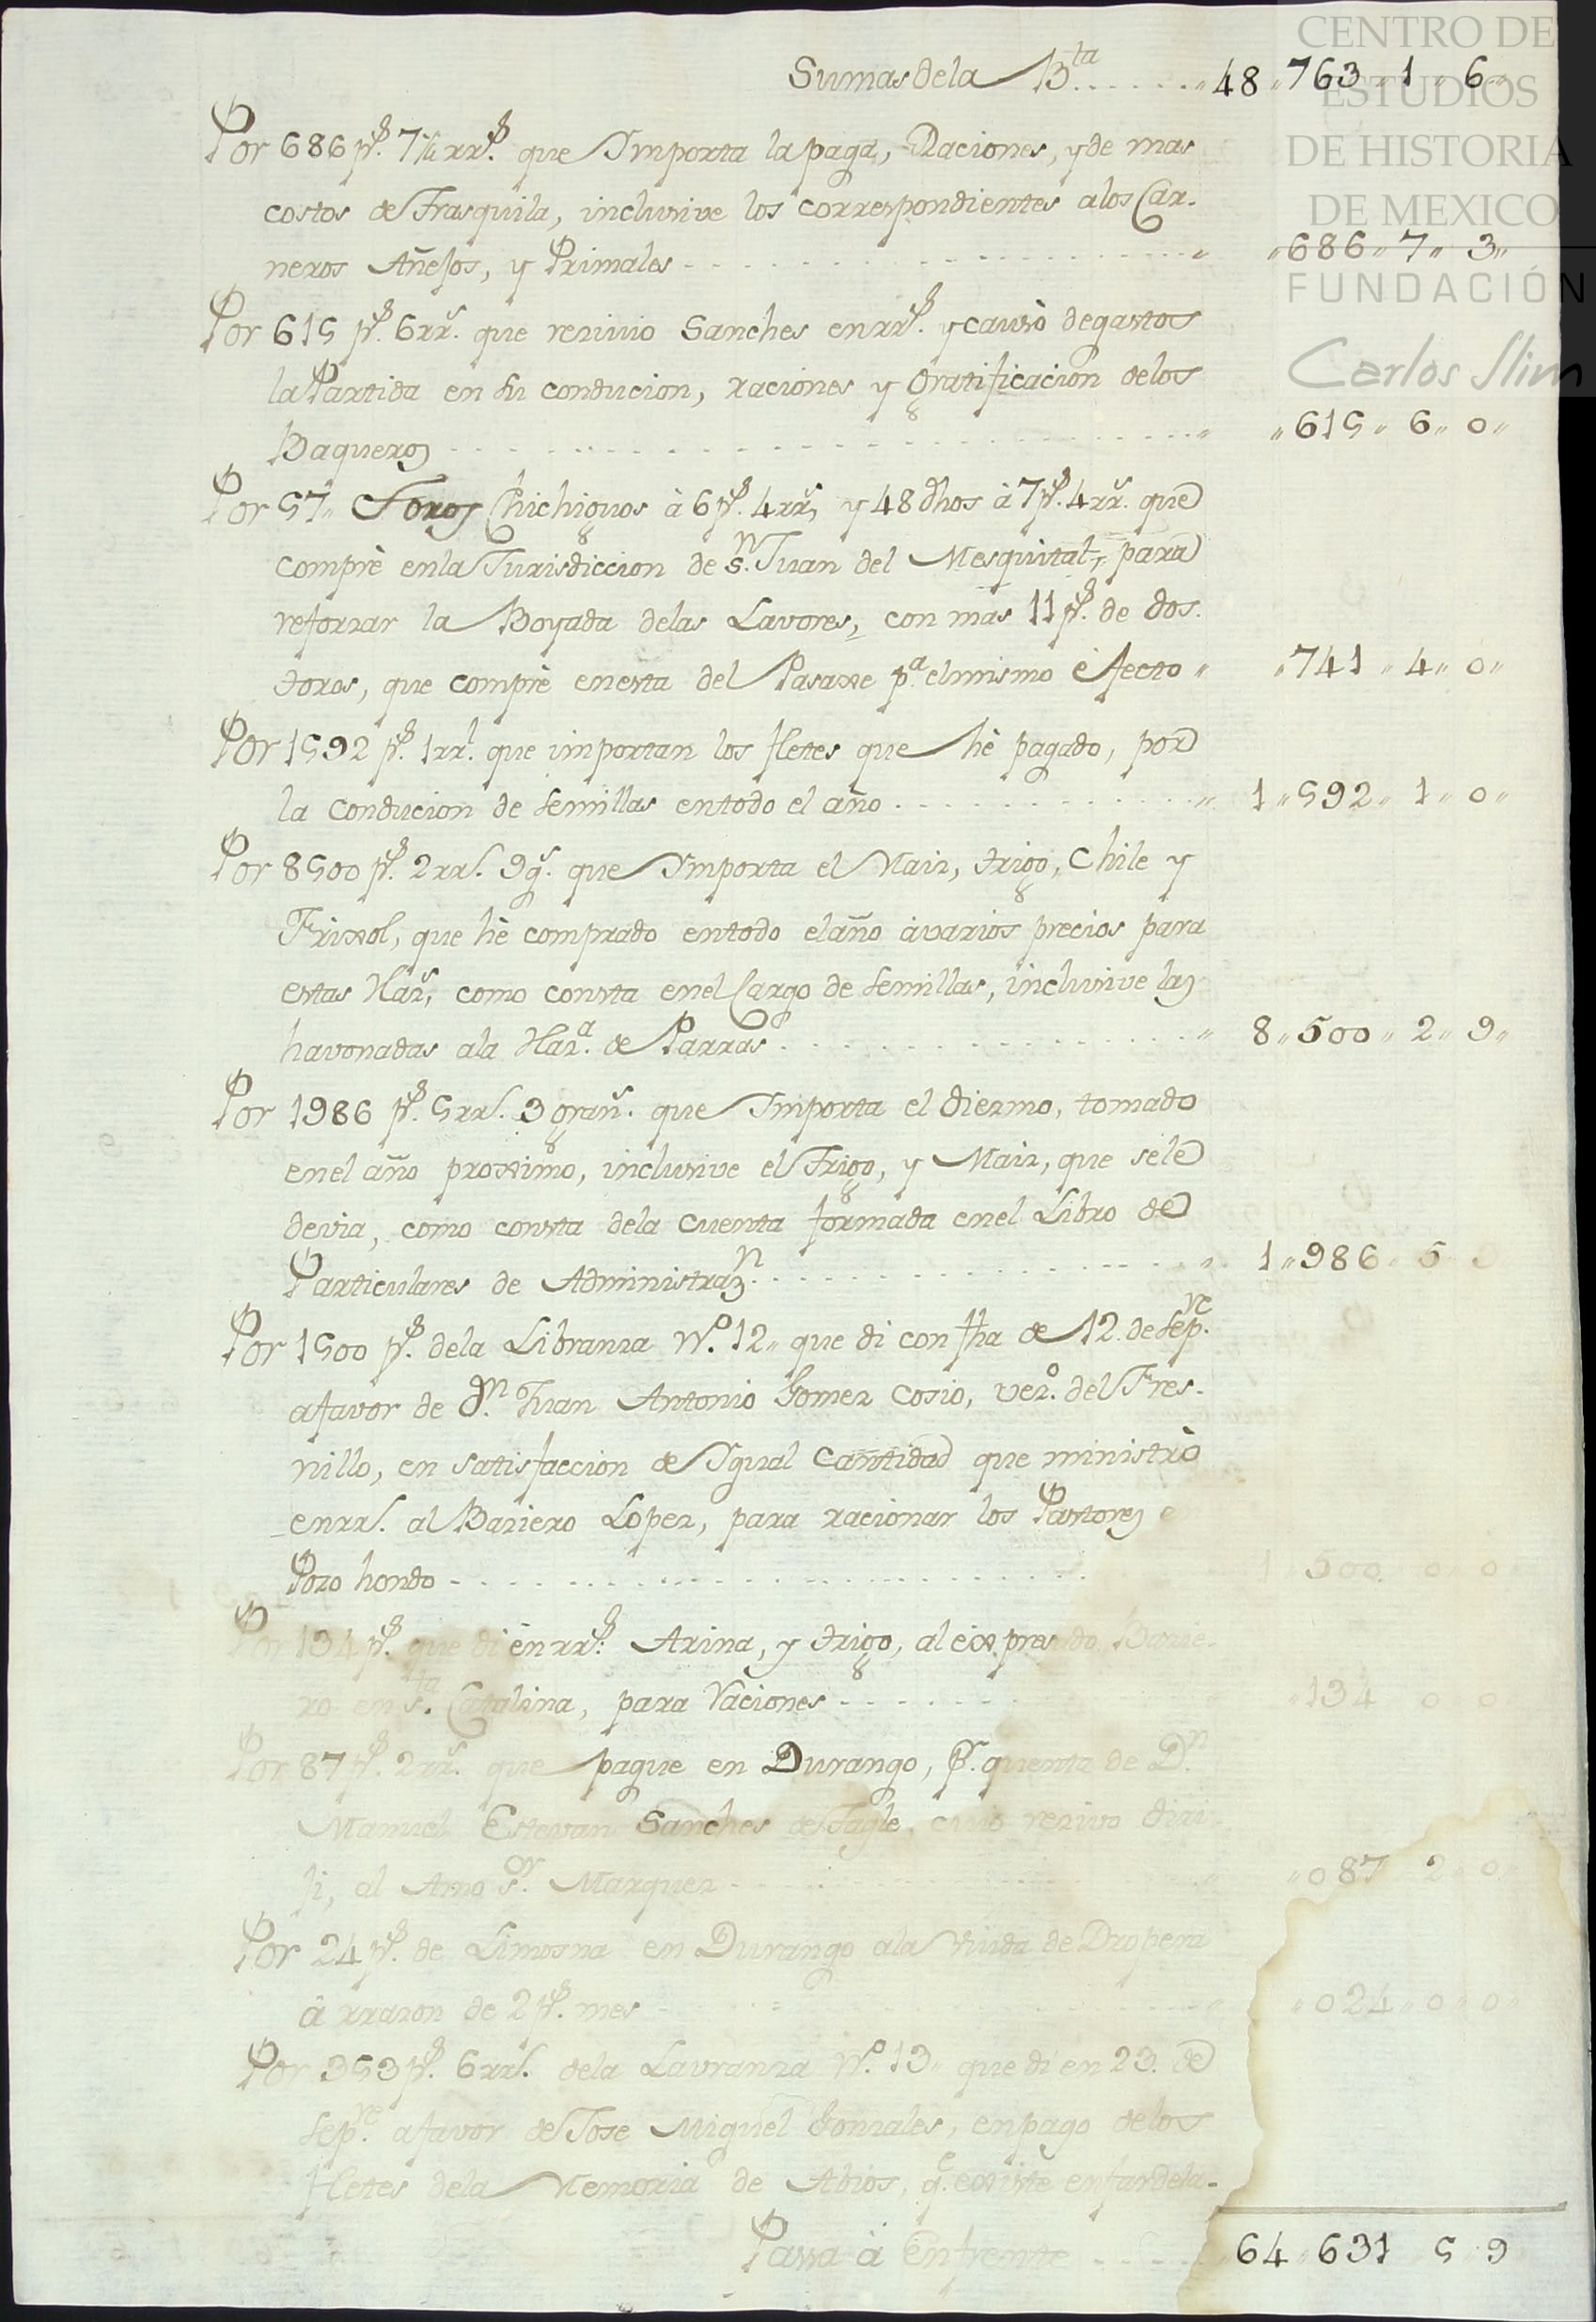 Sumas de la B.ta ........ " 48 " 763 " 1 " 6 "
CENTRO DE
ESTUDIOS
DE HISTORIA
DE MEXICO
FUNDACIÓN
Carlos Slim
Por 686 ps. 7¼ rrs. que Ymporta la paga, Raciones, y de mas
costos de Trasquila, inclusive los correspondientes alos Car-
neros Añejos, y Primales - - - - - " " 686 " 7 " 3 "
Por 615 ps. 6 rrs. que reziuio Sanches en rrs. y causò de gastos
la Partida en su conducion, raciones y gratificacion delos
Baqueros - - - - - " " 615 " 6 " 0 "
Por 57 " Toros Chichiguos à 6 ps. 4 rrs, y 48 dhos à 7 ps. 4 rrs. que
comprè enla Jurisdiccion de Sn. Juan del Mesquital, para
reforzar la Boyada delas Lavores, con mas 11 ps. de dos.
toros, que comprè enesta del Pasaxe pa. elmismo efecto " " 741 " 4 " 0 "
Por 1592 ps. 1 rrl. que importan los fletes que hè pagado, por
la conducion de semillas entodo el año - - - - - " 1 " 592 " 1 " 0 "
Por 8500 ps. 2 rrs. 9 gs. que Ymporta el Maiz, trigo, Chile y
Frixol, que hè comprado entodo elaño àvarios precios para
estas Hazs, como consta enel Cargo de semillas, inclusive las
havonadas ala Haza. de Parras - - - - - " 8 " 500 " 2 " 9 "
Por 1986 ps. 5 rrs. 3 grans. que Ymporta el diezmo, tomado
enel año proximo, inclusive el Trigo, y Maiz, que sele
devia, como consta dela cuenta formada enel Libro de
Particulares de Administrazn. - - - - - " 1 " 986 " 5
Por 1500 ps. dela Libranza No. 12 " que di con fha de 12 de Sepre.
afavor de Dn. Juan Antonio Gomez Cosio, vezo. del Fres-
nillo, en satisfaccion de Ygual cantidad que ministrò
enrrs. al Baziero Lopez, para racionar los Pastores
Pozo hondo - - - - - 1 500 0 0
Por 134 ps. que di èn rrs. Arina, y trigo, al expresado Bazie-
ro en Sta. Catalina, para Raciones - - - - - " 134 0 0
Por 87 ps. 2 rrs. que paguè en Durango, Pr. quenta de Dn.
Manuel Estevan Sanches de Tagle, cuio rezivo diri-
ji, al Amo Sor. Marquez - - - - - " 087 2 " 0
Por 24 ps. de Limosna en Durango ala Viuda de Dropeza
à rrazon de 2 ps. mes - - - - - " " 024 " 0 " 0 "
Por 353 ps. 6 rrs. dela Lavranza No. 13 " que di en 23 de
Sepre. afavor de Jose Miguel Gonzales, enpago delos
fletes dela Memoria de Abios, qe. existe enfardela-
Passa à Enfrente - - - - - 64 " 631 5 9